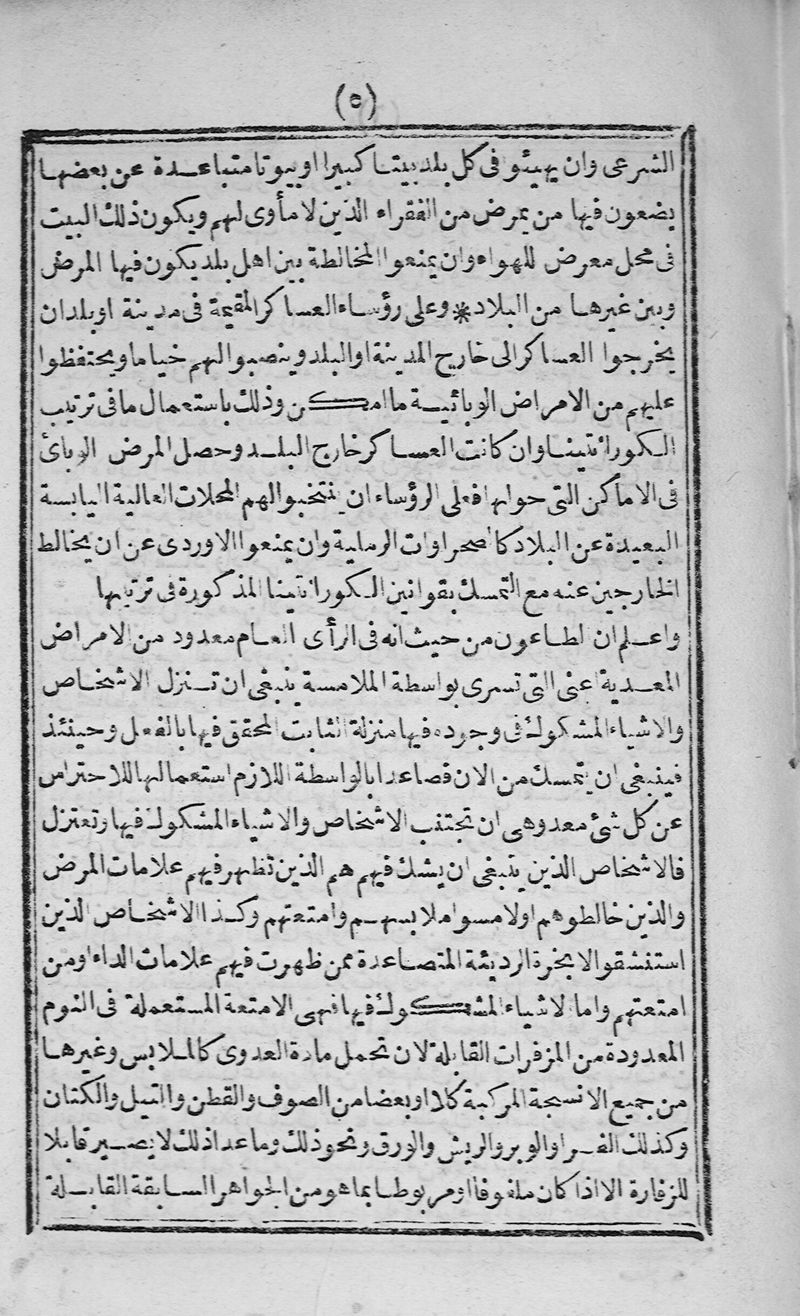 (٥)
الشرعى وان يهيئو فى كل بلد بيتا كبيرا او بيوتا متباعدة عن بعضها
يضعون فيها من يمرض من الفقراء الذين لا مأوى لهم ويكون ذلك البيت
فى محل معرض للهواء وان يمنعوا المخالطة بين اهل بلد يكون فيها المرض
وبين غيرها من البلاد * وعلى رؤساء العساكر المقيمة فى مدينة او بلدان
يخرجوا العساكر الى خارج المدينة او البلد وينصبوا لهم خياما ويحتفظوا
عليهم من الامراض الوبائية ما امكن وذلك باستعمال ما فى ترتيب
الكورانتينا وان كانت العساكر خارج البلد وحصل المرض الوبائ
فى الاماكن التى حولها فعلى الرؤساء ان ينتخبوا لهم المحلات العالية اليابسة
البعيدة عن البلاد كالصحراوات الرملية وان يمنعوا الاوردى عن ان يخالط
الخارجين عنه مع التمسك بقوانين الكورانتينا المذكورة فى ترتيبها
واعلم ان الطاعون من حيث انه فى الرأى العام معدود من الامراض
المعدية اعنى التى تسرى بواسطة الملامسة ينبغى ان تنزل الاشخاص
والاشياء المشكوك فى وجوده فيها منزلة الثابت المحقق فيها بالفعل وحينئذ
فينبغى ان يتمسك من الان فصاعدا بالواسطة اللازم استعمالها للاحتراس
عن كل شئ معد وهى ان تجتنب الاشخاص والاشياء المشكوك فيها وتعتزل
فالاشخاص الذين ينبغى ان يشك فيهم هم الذين تظهر فيهم علامات المرض
والذين خالطوهم اولامسوا ملابسهم وامتعتهم وكذا الاشخاص الذين
استنشقوا الابخرة الرديئة المتصاعدة ممن ظهرت فيهم علامات الداء او من
امتعتهم واما الاشياء المشكوك فيها فهى الامتعة المستعملة فى النوم
المعدودة من المزفرات القابلة لان تحمل مادة العدوى كالملابس وغيرها
من جميع الانسجة المركبة كلا او بعضا من الصوف والقطن والتيل والكتان
وكذلك الفراو الوبر والريش والورق ونحو ذلك وما عدا ذلك لا يصير قابلا
للزفارة الا اذا كان ملفوفا او مربوطا بما هو من الجواهر السابقة القابلة